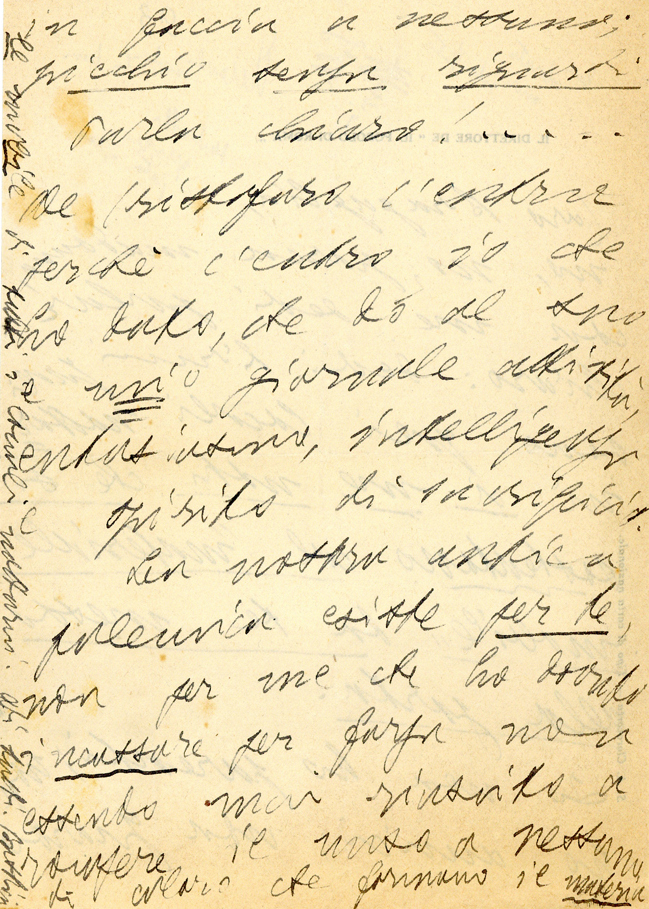 in faccia a nessuno;
picchio senza riguardi
Parla chiaro! . . . .
De Cristofaro c'entra
perchè c'entro io che
ho dato, che dò al suo
e mio giornale attività,
entusiasmo, intelligenza
e spirito di sacrificio.
La nostra antica
polemica esiste per te,
non per me che ho dovuto
incassare per forza non
essendo mai riuscito a
rompere il muso a nessuno
di coloro che formano il materia